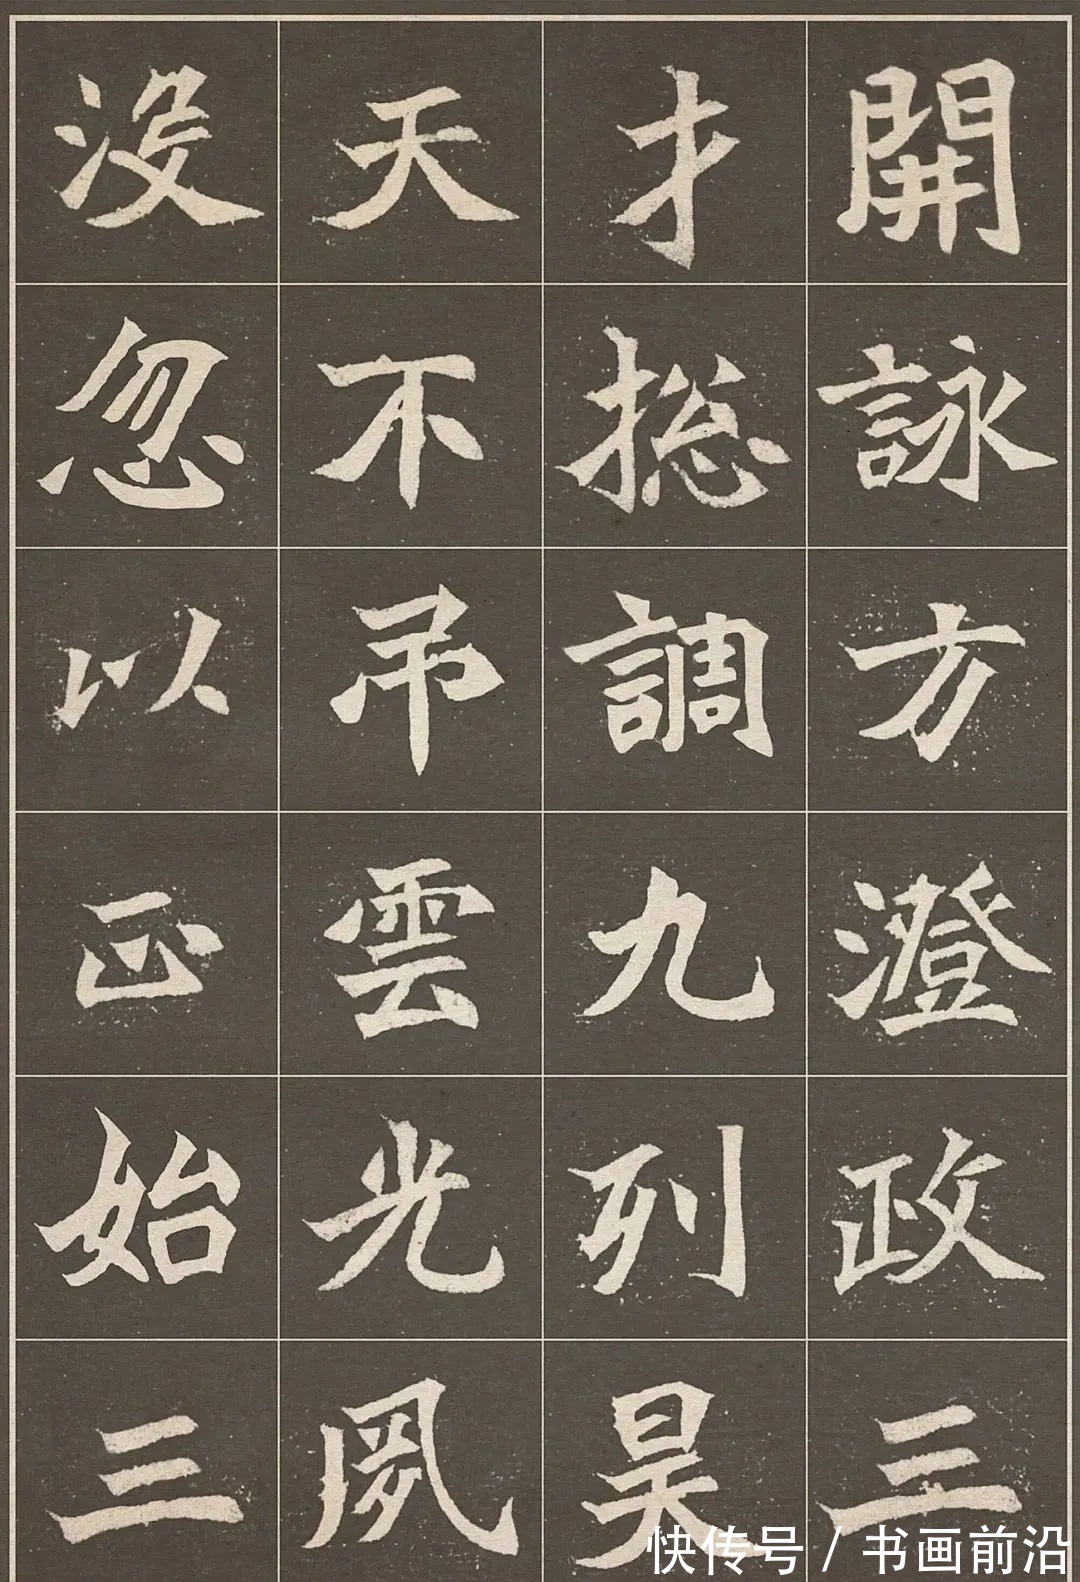 開詠方澄政三
才揔調九列昊
天不吊雲光夙
没忽以正始三
快传号 / 书画前沿